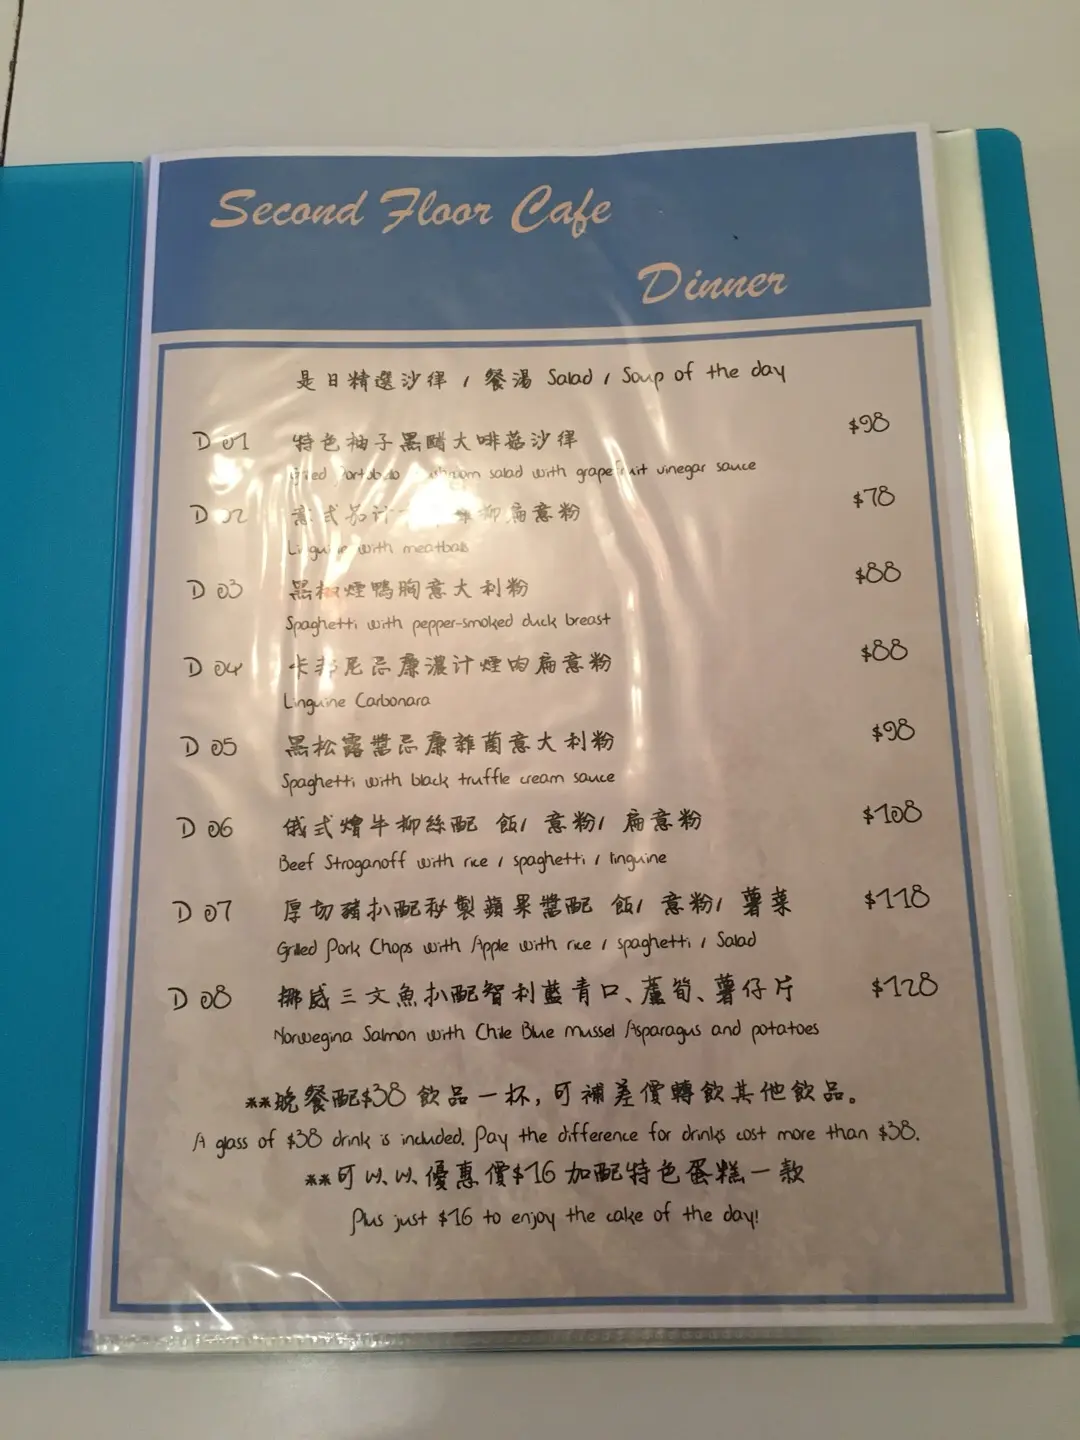 Second Floor Cafe
Dinner
是日精選沙律 / 餐湯 Salad / Soup of the day
D 01 特色柚子黑醋大啡菇沙律 $98
salad with grapefruit vinegar sauce
D 02 意式茄汁 扁意粉 $78
Linguine with meatballs
D 03 黑椒煙鴨胸意大利粉 $88
Spaghetti with pepper-smoked duck breast
D 04 卡邦尼忌廉濃汁煙肉扁意粉 $88
Linguine Carbonara
D 05 黑松露醬忌廉雜菌意大利粉 $98
Spaghetti with black truffle cream sauce
D 06 俄式燴牛柳絲配 飯/ 意粉/ 扁意粉 $108
Beef Stroganoff with rice / spaghetti / linguine
D 07 厚切豬扒配秘製蘋果醬配 飯/ 意粉/ 薯菜 $118
Grilled Pork Chops with Apple with rice / spaghetti / Salad
D 08 挪威三文魚扒配智利藍青口、蘆筍、薯仔片 $128
Norwegina Salmon with Chile Blue mussel Asparagus and potatoes
**晚餐配$38 飲品一杯, 可補差價轉飲其他飲品。
A glass of $38 drink is included. Pay the difference for drinks cost more than $38.
**可以以優惠價$16 加配特色蛋糕一款
Plus just $16 to enjoy the cake of the day!